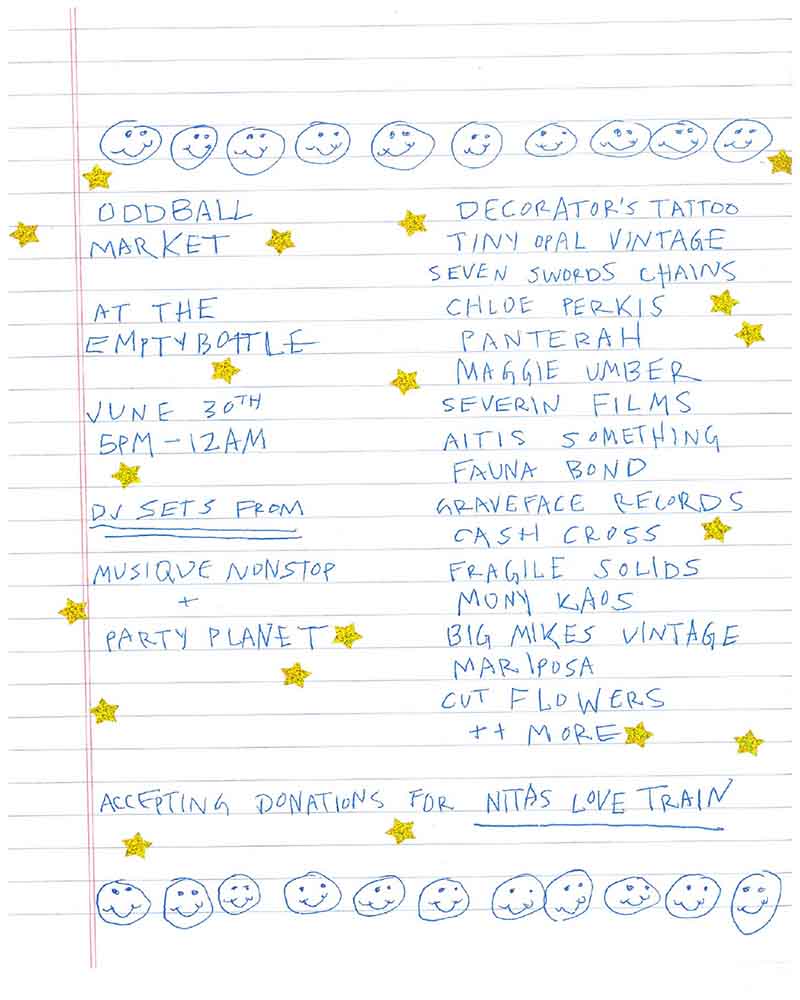 ODDBALL
MARKET
AT THE
EMPTY BOTTLE
JUNE 30TH
5PM - 12AM
DJ SETS FROM
MUSIQUE NONSTOP
+
PARTY PLANET
DECORATOR'S TATTOO
TINY OPAL VINTAGE
SEVEN SWORDS CHAINS
CHLOE PERKIS
PANTERAH
MAGGIE UMBER
SEVERIN FILMS
AITIS SOMETHING
FAUNA BOND
GRAVEFACE RECORDS
CASH CROSS
FRAGILE SOLIDS
MONY KAOS
BIG MIKES VINTAGE
MARIPOSA
CUT FLOWERS
++ MORE
ACCEPTING DONATIONS FOR NITAS LOVE TRAIN